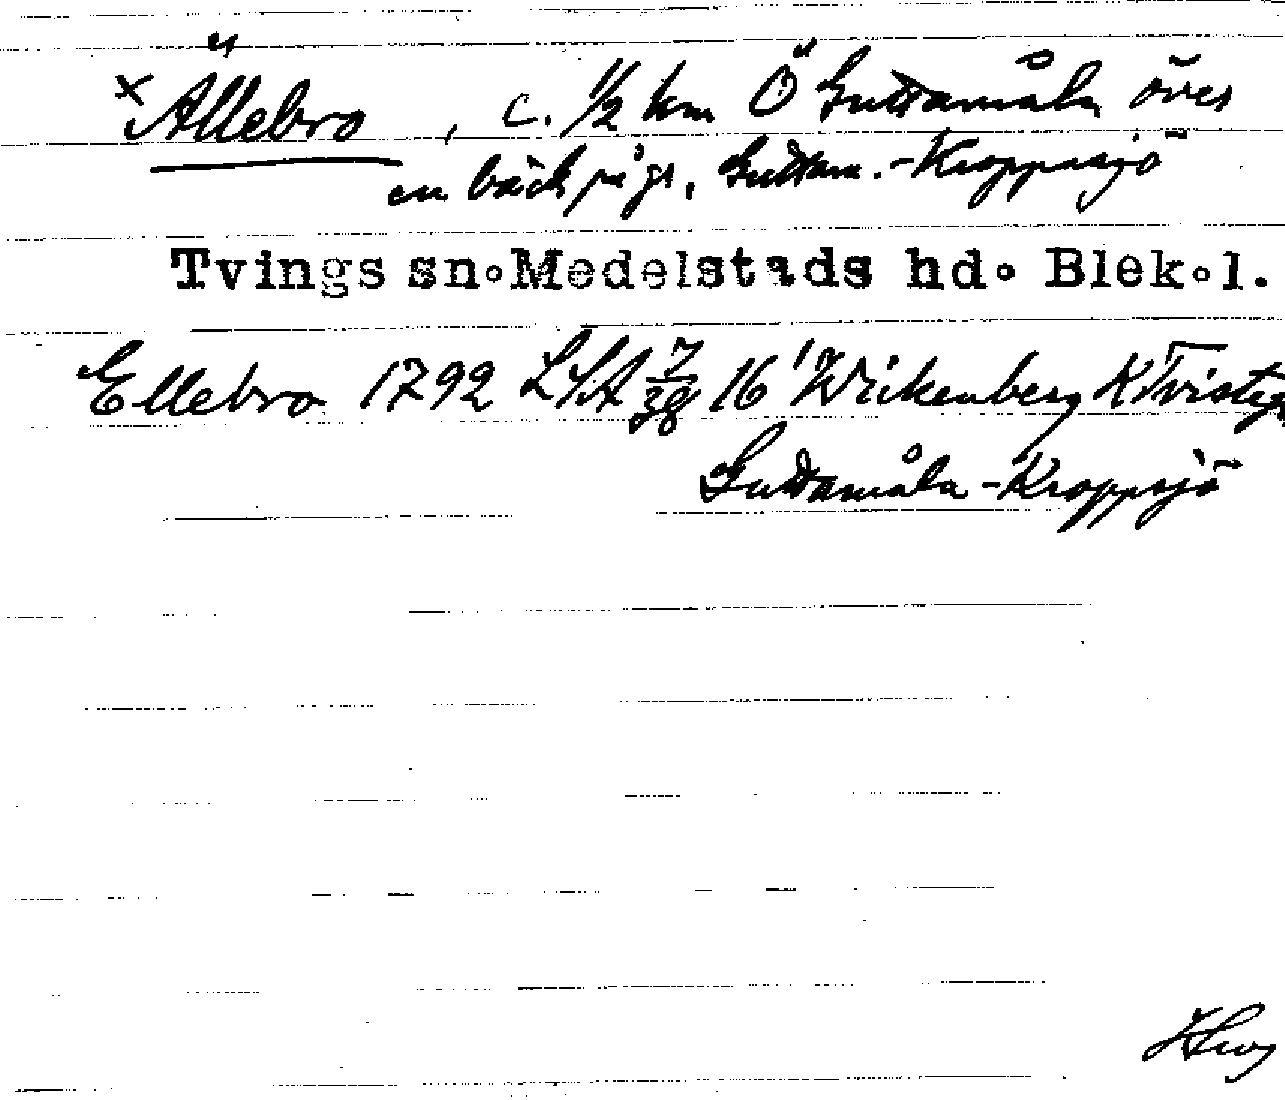 × Ällebro, c. ½ km Ö Guttamåla över
en bäck på gr. Guttam.-Kroppsjö
Tvings sn. Medelstads hd. Blek.l.
Ellebro 1792 LSA 16 Wickenberg K Tvistegr
Guttamåla-Kroppsjö